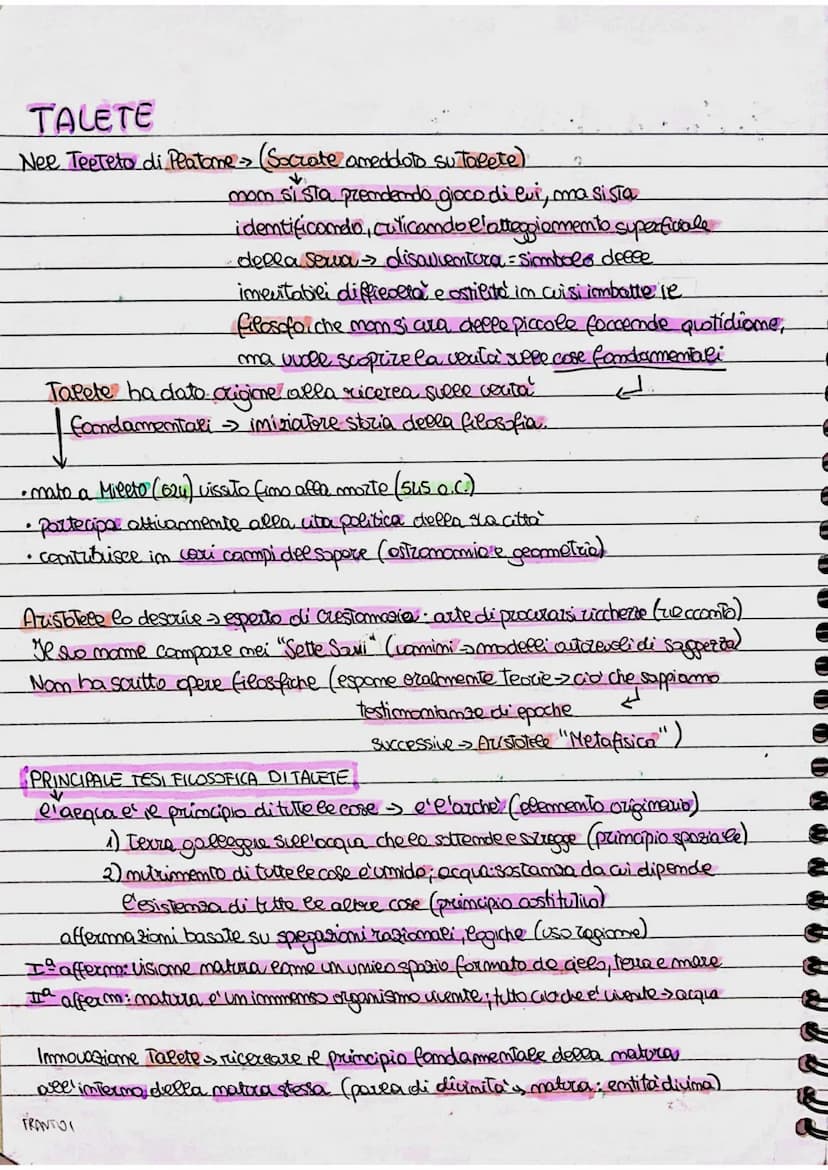 TALETE
Nel Teeteto di Platone → (Socrate aneddoto su Talete)
non si sta prendendo gioco di lui, ma si sta
identificando, criticando l'atteggiamento superficiale
della serva → disavventura = simbolo delle
inevitabili difficoltà e ostilità in cui si imbatte il
filosofo, che non si cura delle piccole faccende quotidiane,
ma vuole scoprire la verità sulle cose fondamentali
Talete ha dato origine alla ricerca sulle verità
fondamentali → iniziatore storia della filosofia.
• nato a Mileto (624) vissuto fino alla morte (545 a.C.)
• partecipa attivamente alla vita politica della sua città
• contribuisce in vari campi del sapere (astronomia e geometria)
Aristotele lo descrive → esperto di crestomazia: arte di procurarsi ricchezze (racconto)
Il suo nome compare nei "Sette Savi" (uomini → modelli autorevoli di saggezza)
Non ha scritto opere filosfiche (espone oralmente teorie → ciò che sappiamo
testimonianze di epoche
successive → Aristotele "Metafisica")
PRINCIPALE TESI FILOSOFICA DI TALETE
l'acqua è il principio di tutte le cose → è l'archè (elemento originario)
1) Terra galleggia sull'acqua che la sottende e sregge (principio spaziale)
2) nutrimento di tutte le cose è umido; acqua: sostanza da cui dipende
l'esistenza di tutte le altre cose (principio costitutivo)
affermazioni basate su spegazioni razionali, logiche (uso ragione)
Iª afferm: visione natura come un unico spazio formato da cielo, terra e mare
IIª afferm: natura è un immenso organismo vivente; tutto ciò che è vivente → acqua
Innovazione Talete → ricercare il principio fondamentale della natura
all'interno della natura stessa (parla di divinità → natura: entità divina)